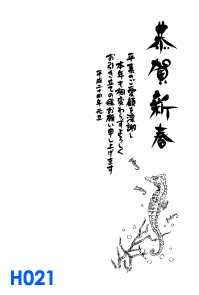 恭賀新春
平素のご愛顧を深謝し
本年も相変わらずよろしく
お引き立ての程お願い申し上げます
平成二十四年 元旦
H021